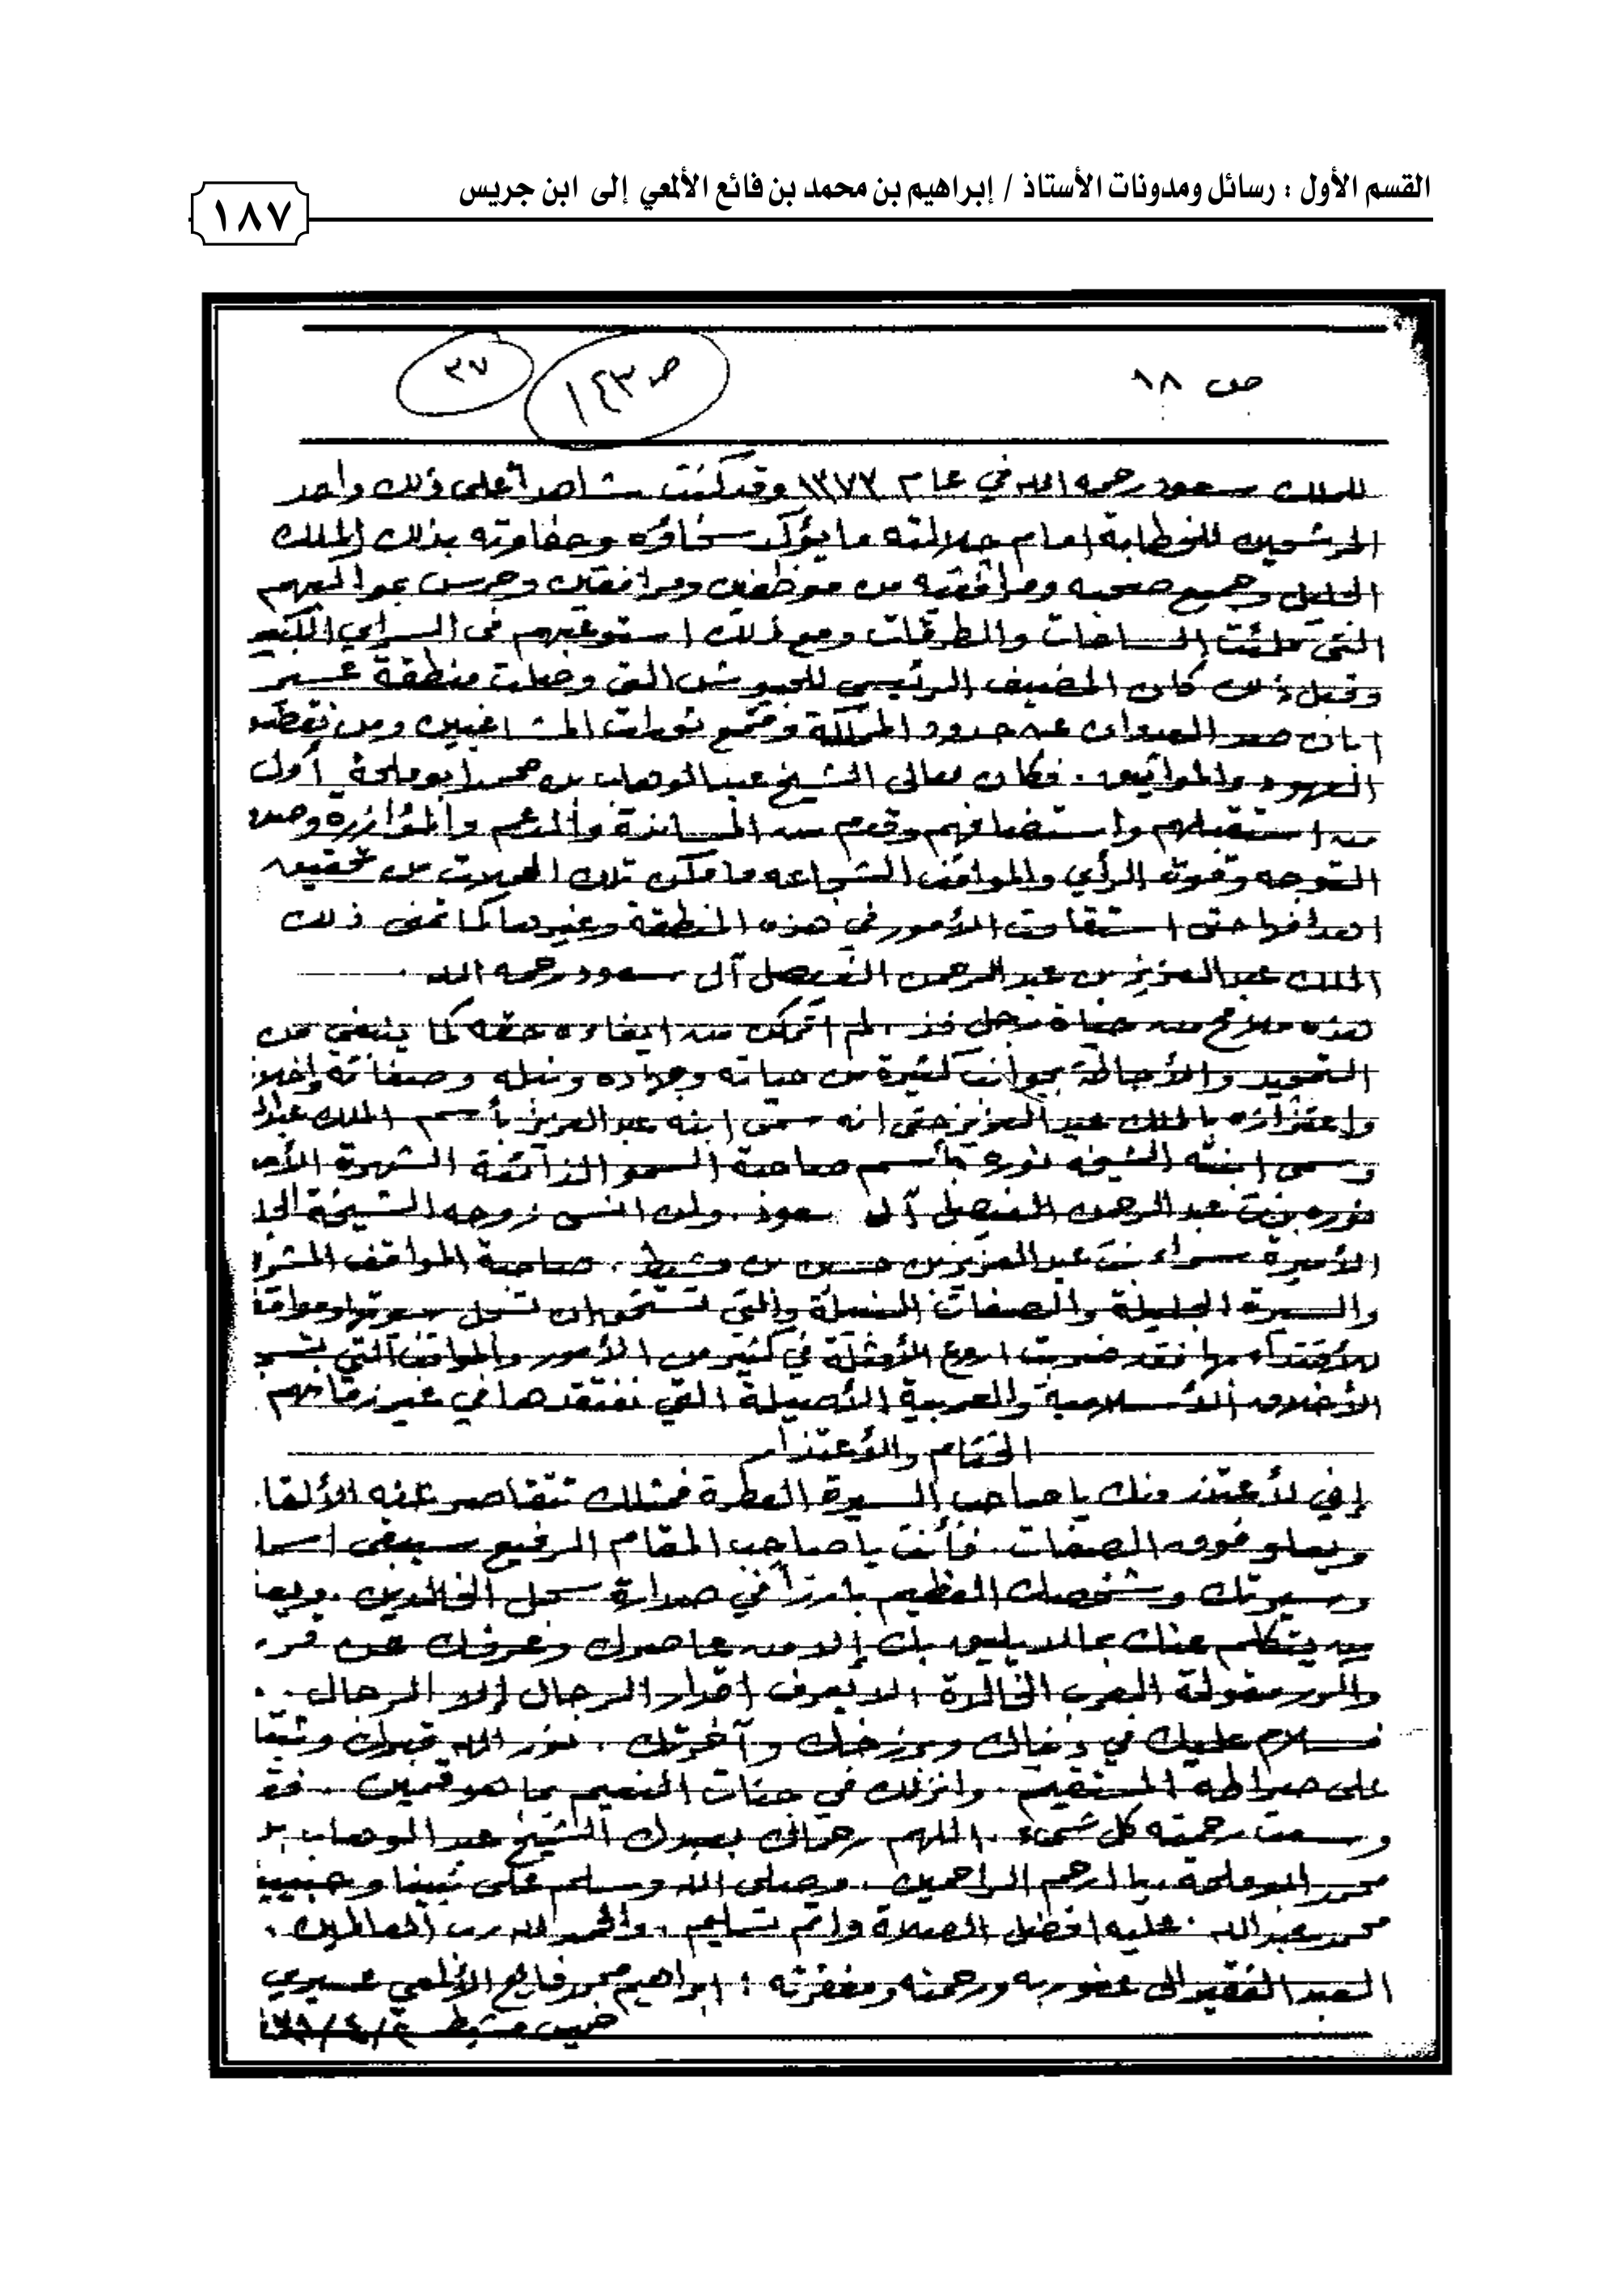 القسم الأول : رسائل ومدونات الأستاذ / إبراهيم بن محمد بن فائع الألمعي إلى ابن جريس
١٨٧
ص ١٨
ص ١٤٣
٣٧
للملك سعود رحمه الله في عام ١٣٧٣ وقد كنت شاهداً على ذلك واحد
المرشحين للخطابة امام جلالته ما يؤكد سخاؤه وحفاوته بذلك الملك
الجليل وجميع صحبه ومرافقيه من موظفين ومرافقين وحرس بمواكبهم
التي ملئت الساحات والطرقات ومع ذلك استوعبهم في السراي الكبير
وقبل ذلك كان المضيف الرئيسي للجيوش التي وصلت منطقة عسير
إبان صد العدوان عن حدود المملكة وقمع ثورات المشاغبين ومن نقض
العهود والمواثيق . فكان معالي الشيخ عبدالوهاب بن محمد ابو ملحة أول
من استقبلهم واستضافهم وقدم من المساندة والدعم والمؤازرة وحسن
التوجه وقوة الرأي والمواقف الشجاعه ما مكن تلك الحملات من تحقيق
اهدافها حتى استقامت الأمور في هذه المنطقة وغيرها كما تمنى ذلك
الملك عبدالعزيز بن عبدالرحمن الفيصل آل سعود رحمه الله .
هذه ملامح من حياة رجل فذ . لم اتمكن من ايفاءه حقه كما ينبغي من
التمجيد والأحاطة بجوانب كثيرة من حياته وجهاده ونبله وصفاته
واعتزازه بالملك عبدالعزيز حتى انه سمى ابنه عبدالعزيز بأسم الملك
وسمى ابنته الشيخه نوره بأسم صاحبة السمو الذائعة الشهرة
نوره بنت عبدالرحمن الفيصل آل سعود . ولن انسى زوجه الشيخة
الأميرة سراء بنت عبدالعزيز بن حسين بن مشيط . صاحبة المواقف
والسيرة الجليلة والصفات النبيلة والتي تستحق ان تسجل سيرتها
للأقتداء بها فقد ضربت اروع الأمثلة في كثير من الأمور والمواقف التي
الأخلاق الأسلامية والعربية الأصيلة التي نفتقدها في غير زمانهم
الختام والأعتذار
إني لأعتذر منك يا صاحب السيرة العطرة فمثلك تتقاصر عنه
ويعلو فوق الصفات . فأنت يا صاحب المقام الرفيع سيبقى
وسيرتك وشخصك العظيم بارزاً في صدارة سجل الخالدين .
من يتكلم عنك بما لا يليق بك إلا من عاصرك وعرفك عن
مقولة العرب الخالدة . لا يعرف اقدار الرجال إلا الرجال . .
فسلام عليك في دنياك وبرزخك وآخرتك . نور الله قبرك
على صراطه المستقيم . وانزلك في جنات النعيم بما هو قمين .
وسعت رحمته كل شيء . اللهم رحماك بعبدك الشيخ عبدالوهاب
محمد ابو ملحة . يا ارحم الراحمين . وصلى الله وسلم على نبينا
محمد بن عبدالله . عليه افضل الصلاة واتم تسليم . والحمد لله رب العالمين .
العبد الفقير الى عفو ربه ورحمته ومغفرته : ابراهيم محمد فايع الألمعي عسيري
خميس مشيط